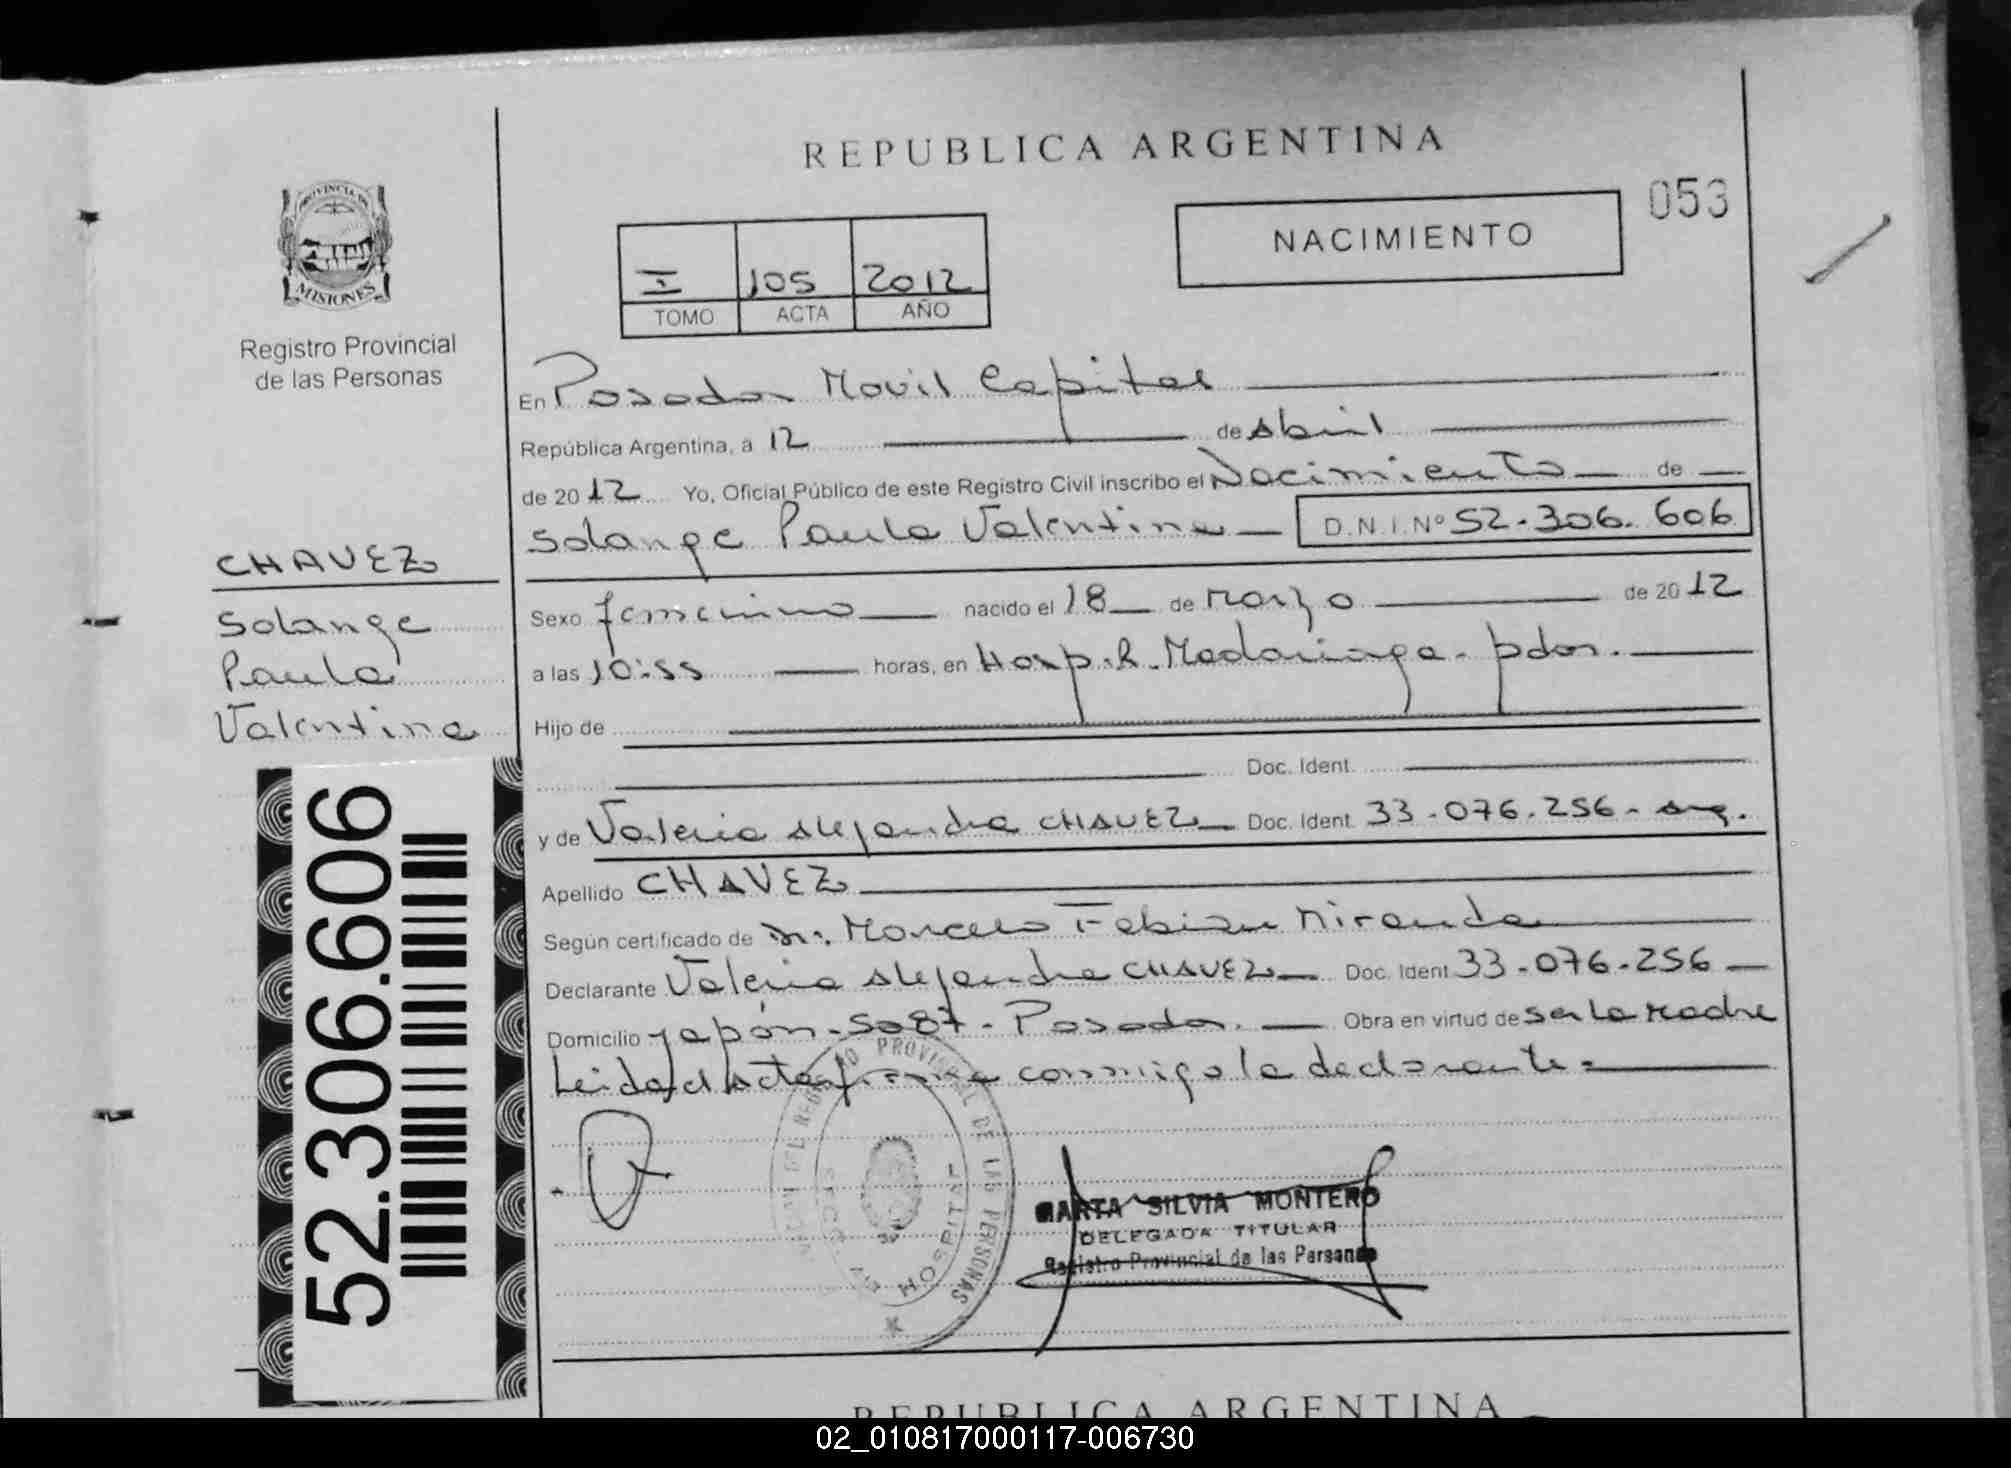 REPUBLICA ARGENTINA
053
NACIMIENTO
PROVINCIA DE
MISIONES
Registro Provincial
de las Personas
I 105 2012
TOMO ACTA AÑO
En Posadas Movil Capital
República Argentina, a 12 de Abril
de 2012 Yo, Oficial Público de este Registro Civil inscribo el Nacimiento de
Solange Paula Valentina D.N.I. Nº 52.306.606
CHAVEZ
Solange
Paula
Valentina
Sexo femenino nacido el 18 de Marzo de 2012
a las 10:55 horas, en Hosp. R. Madariaga - pdas.
Hijo de
Doc. Ident.
y de Valeria Alejandra CHAVEZ Doc. Ident. 33-076.256- Arg.
Apellido CHAVEZ
Según certificado de Dr. Marcelo Fabian Miranda
Declarante Valeria Alejandra CHAVEZ Doc. Ident. 33-076-256
Domicilio Japón - 5087 - Posadas. Obra en virtud de ser la Madre
Leida el Acta firma conmigo la declarante =
52.306.606
PROVINCIAL DE LAS PERSONAS
HOSPITAL
MARTA SILVIA MONTERO
DELEGADA TITULAR
Registro Provincial de las Personas
REPUBLICA ARGENTINA
02_010817000117-006730